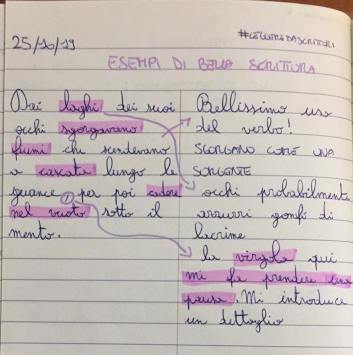 25/10/19
#COLLEGIODASCRITTORI
ESEMPI DI BELLA SCRITTURA
Dai laghi dei suoi
occhi sgorgavano
fiumi che scendevano
a cascata lungo le
guance ① per poi cadere
nel vuoto sotto il
mento.
Bellissimo uso
del verbo!
SGORGANO COME UNA
SORGENTE
occhi probabilmente
azzurri gonfi di
lacrime
la virgola qui
mi fa prendere una
pausa. Mi introduce
un dettaglio